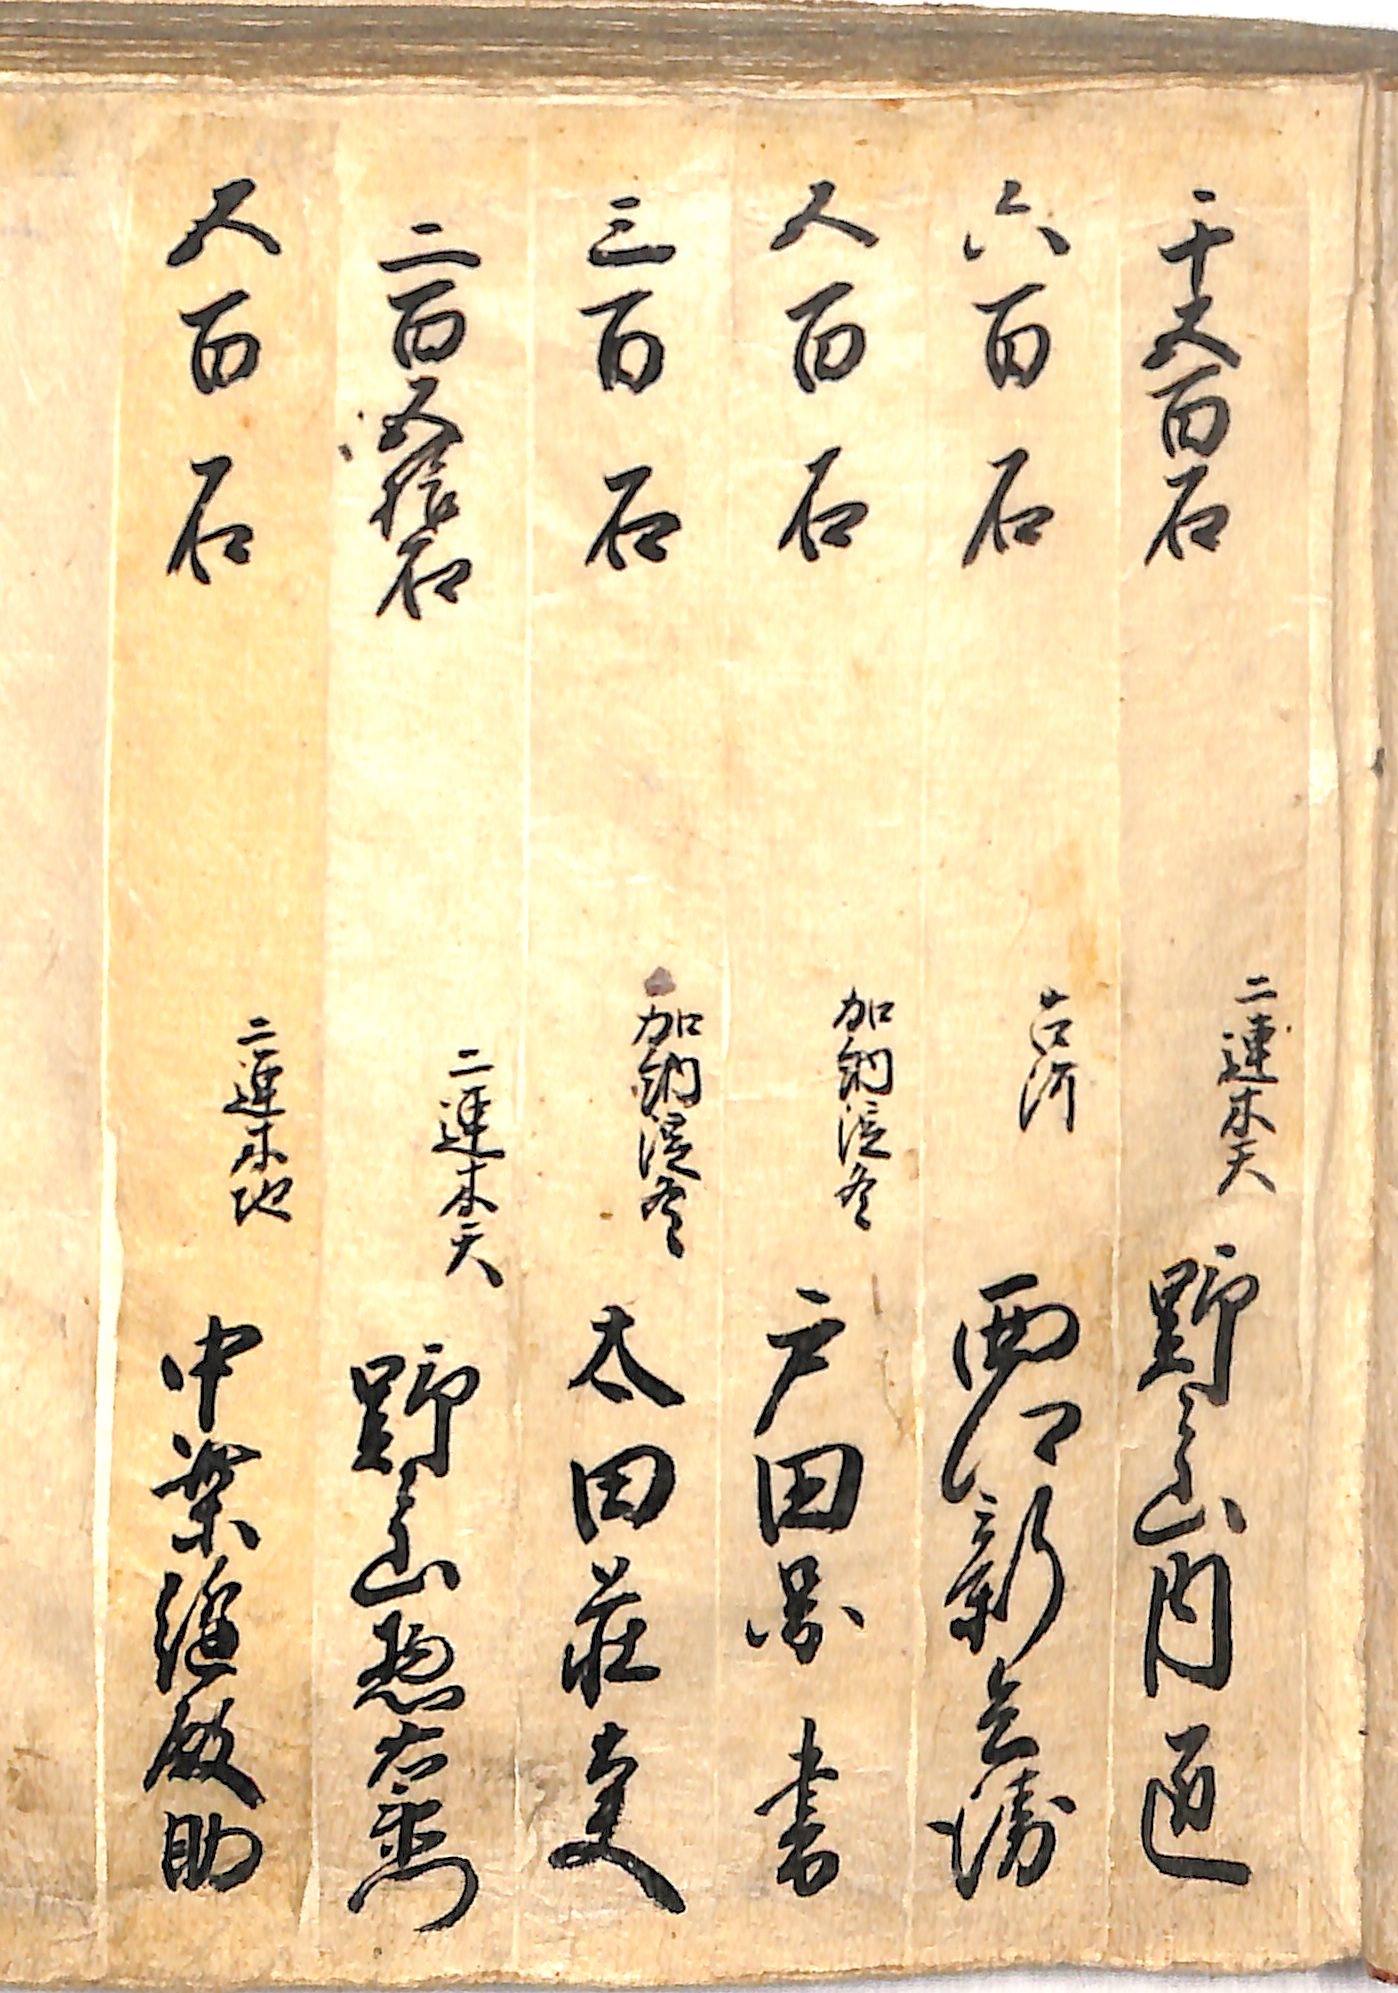 千五百石 二連木天 野々山内匠
六百石 古河 西郷新兵衛
五百石 加納淀冬 戸田図書
三百石 加納淀冬 太田荘
二百五拾石 二連木天 野々山惣右衛門
五百石 二連木地 中葉縫殿助